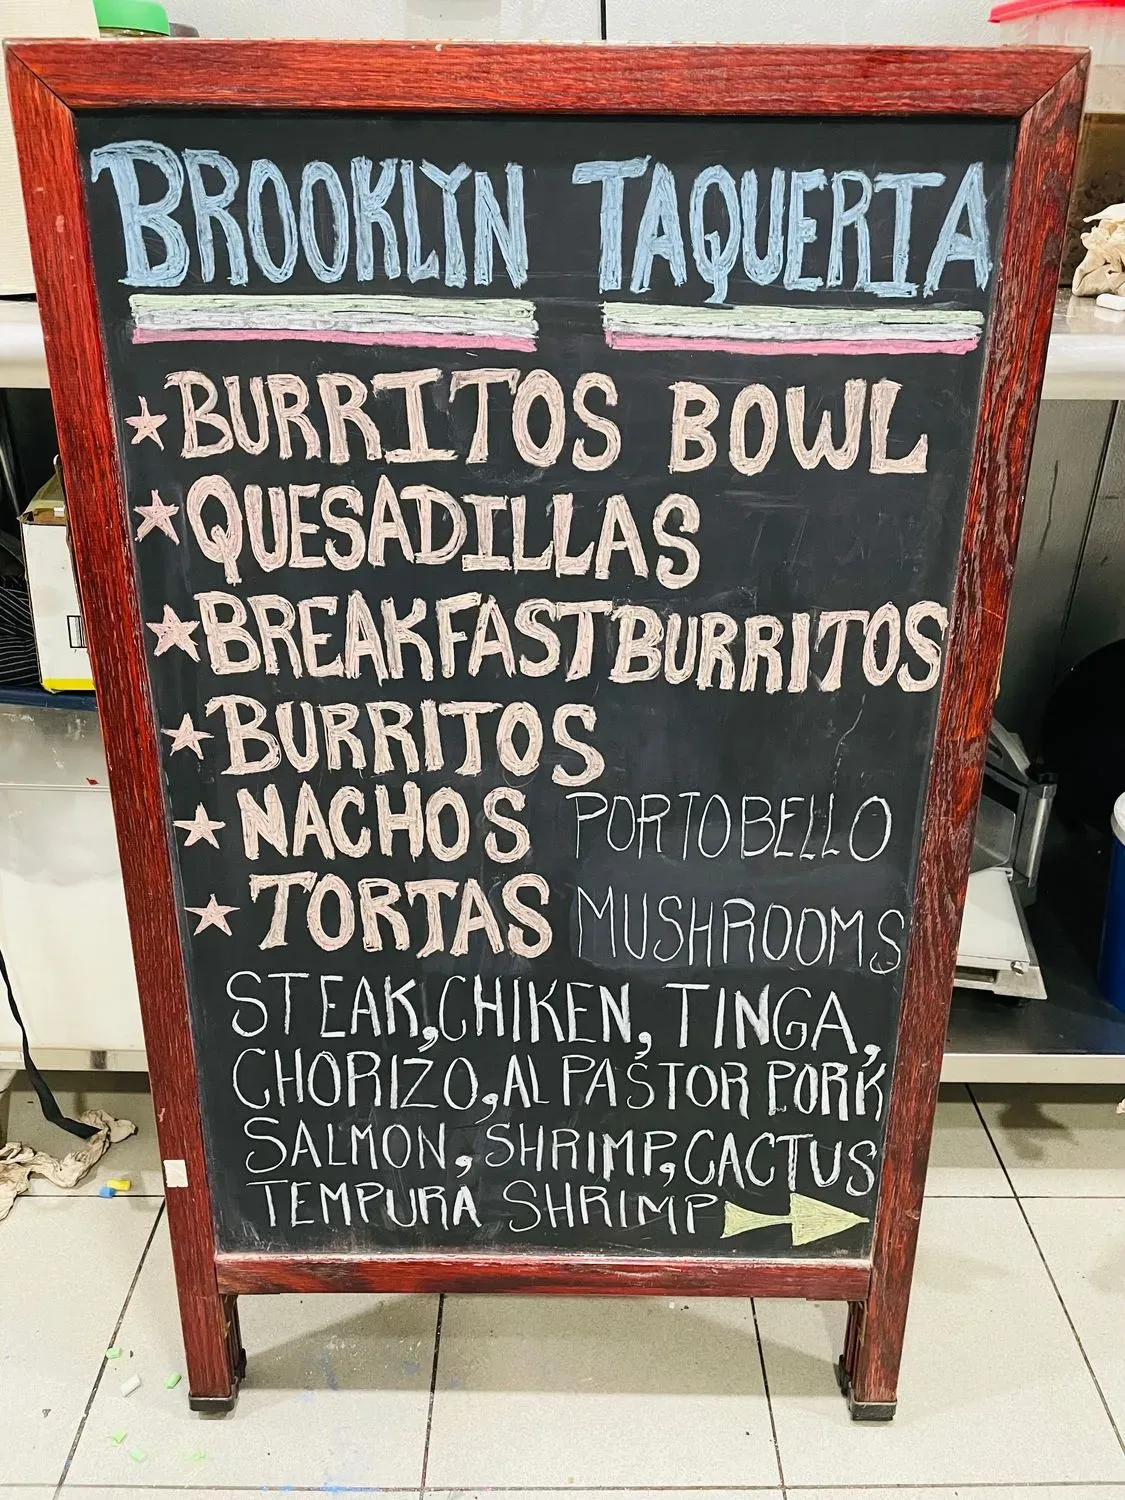 BROOKLYN TAQUERIA
BURRITOS BOWL
QUESADILLAS
BREAKFAST BURRITOS
BURRITOS
NACHOS PORTOBELLO
TORTAS MUSHROOMS
STEAK, CHIKEN, TINGA,
CHORIZO, AL PASTOR PORK
SALMON, SHRIMP, CACTUS
TEMPURA SHRIMP